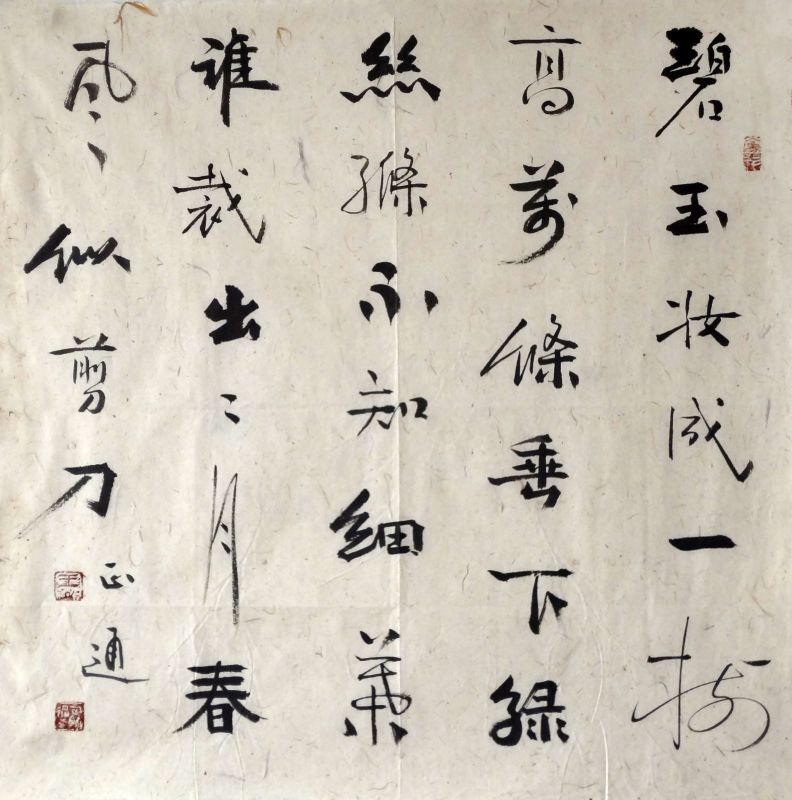 碧玉妆成一树
高萬條垂下緑
絲絛不知細葉
谁裁出二月春
风似剪刀
正通